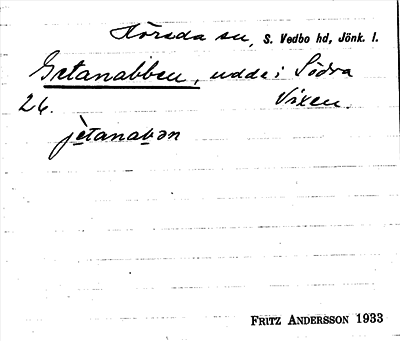 Hörsda sn, S. Vedbo hd, Jönk. l.
Getanabben, udde i Södra
26. Vixen.
jètanabən
FRITZ ANDERSSON 1933